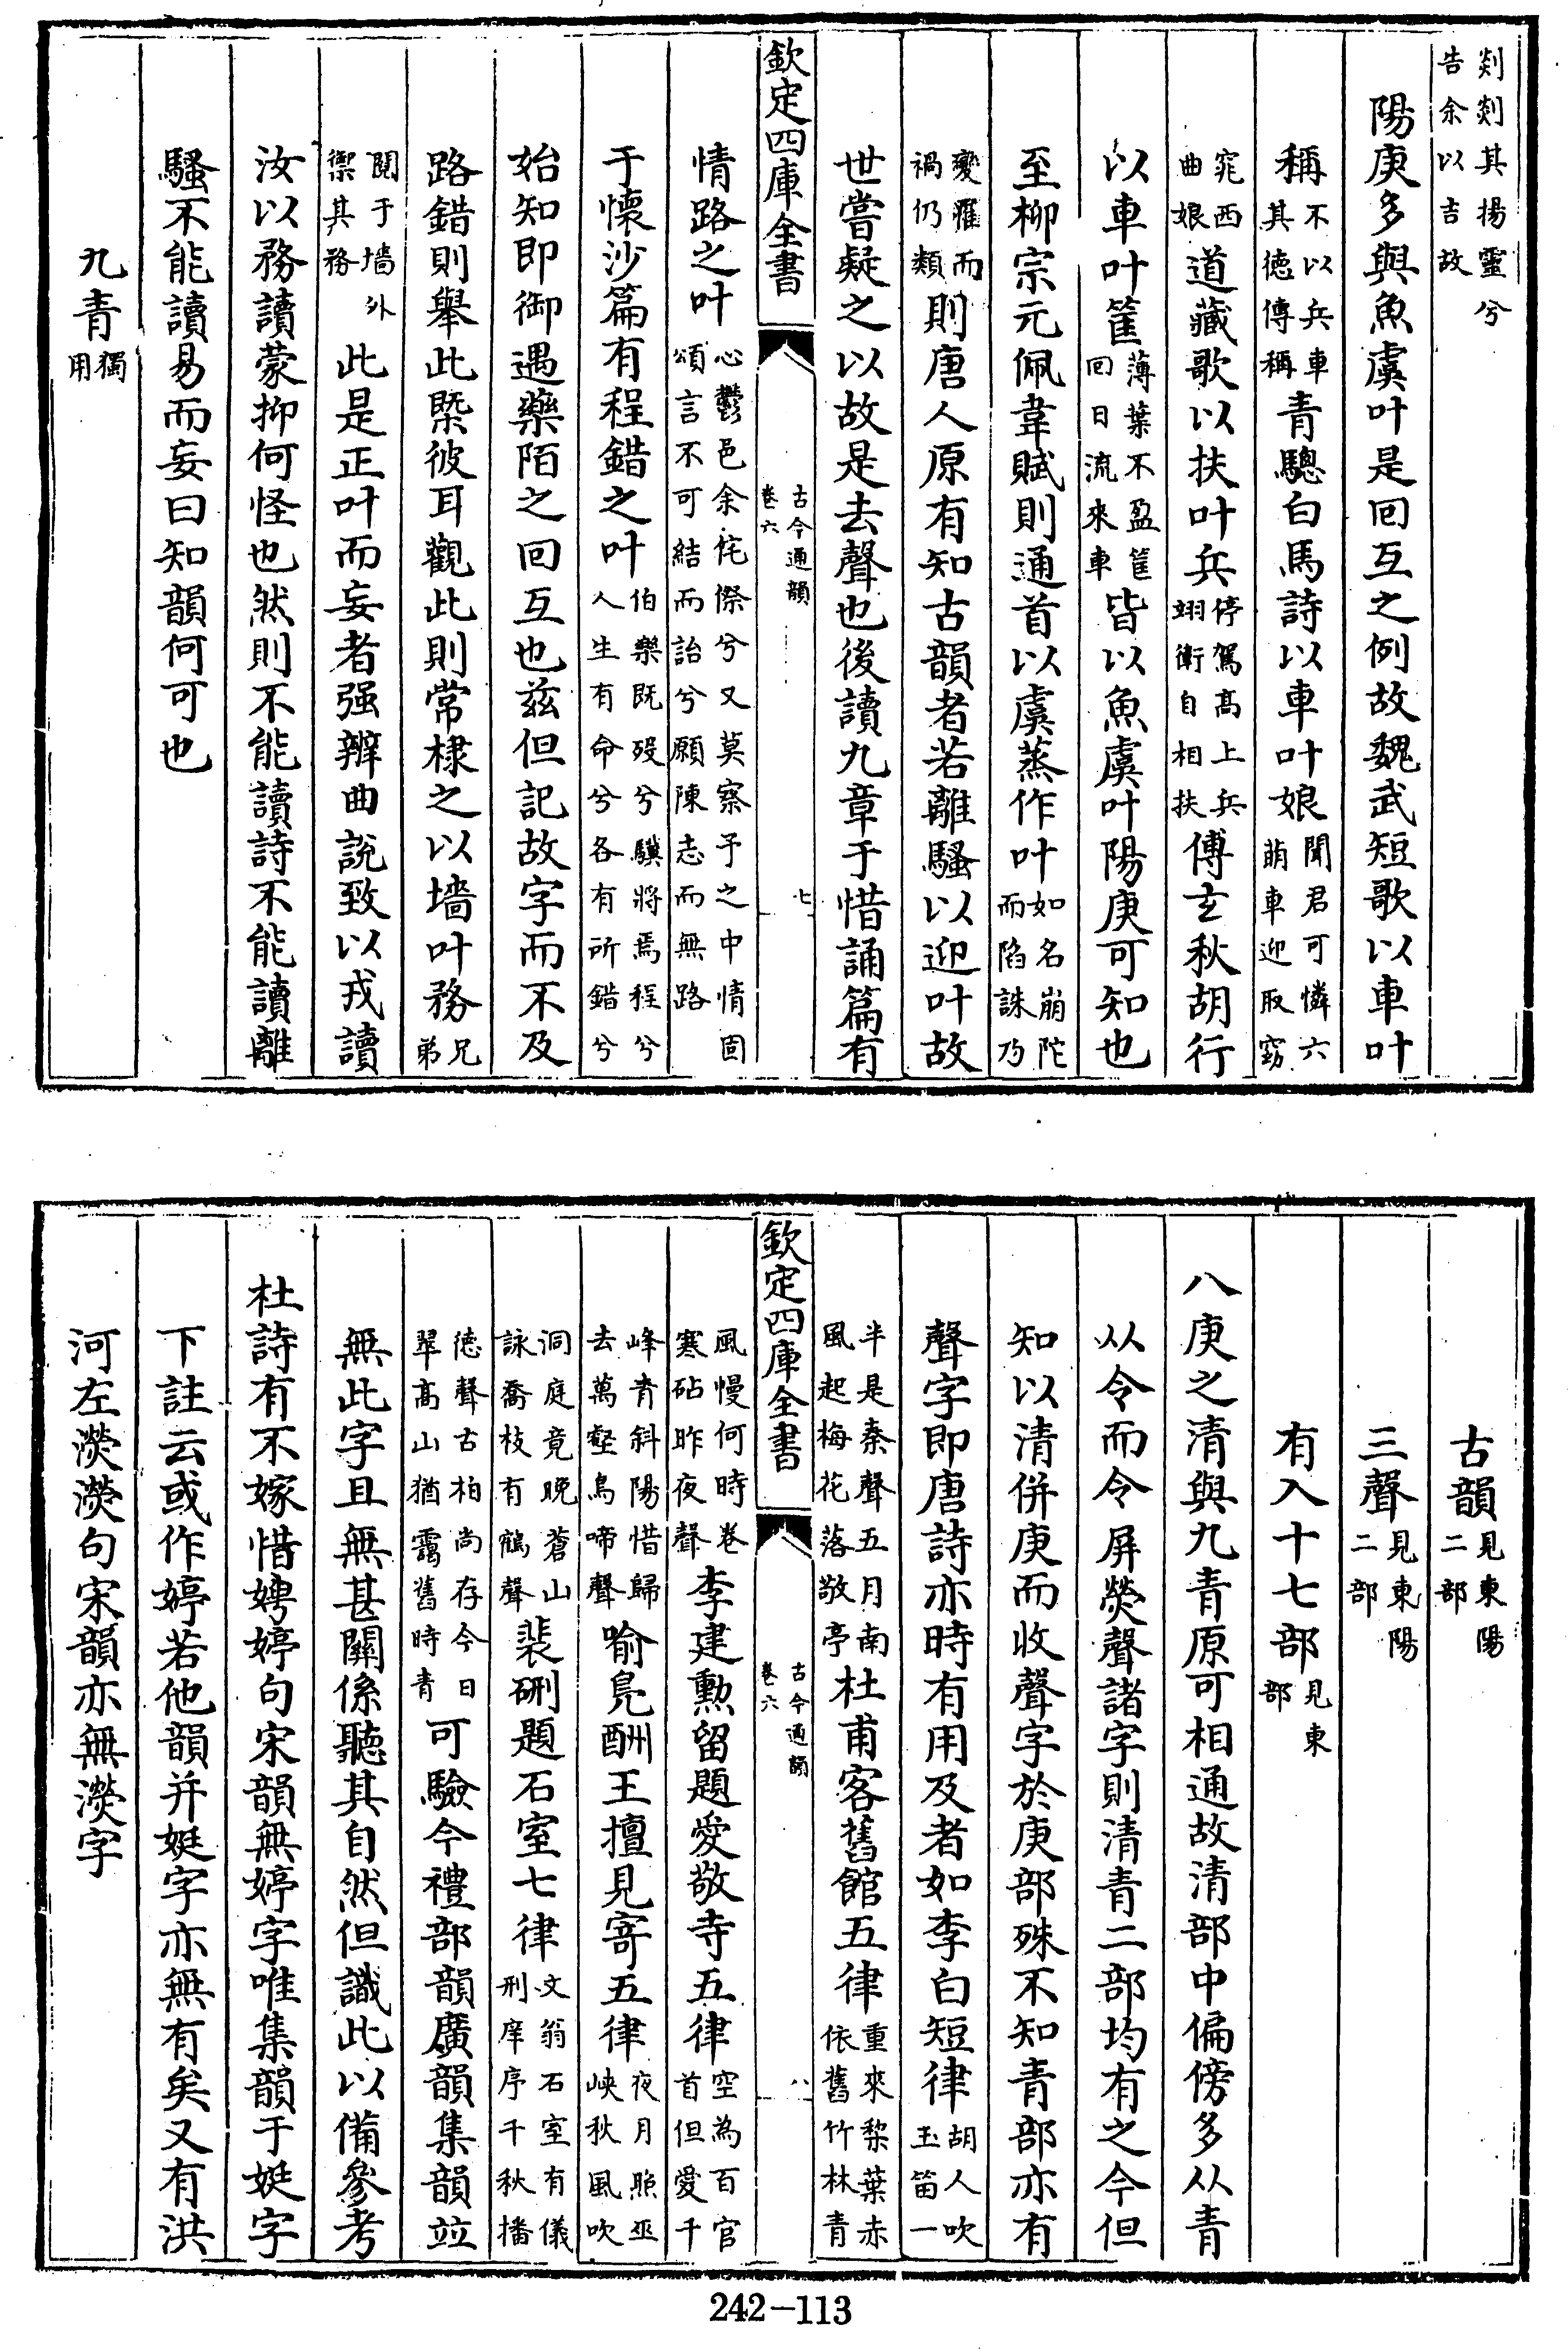 剡剡其揚靈兮
告余以吉故
陽庚多與魚虞叶是回互之例故魏武短歌以車叶
稱不以兵車其德傳稱青驄白馬詩以車叶娘聞君可憐六萌車迎取窈
窕西曲娘道藏歌以扶叶兵停駕高上兵翊衛自相扶傅玄秋胡行
以車叶筐薄葉不盈筐回日流來車皆以魚虞叶陽庚可知也
至柳宗元佩韋賦則通首以虞蒸作叶如名崩陀而陷誅乃
變罹而禍仍類則唐人原有知古韻者若離騷以迎叶故
世嘗疑之以故是去聲也後讀九章于惜誦篇有
欽定四庫全書 古今通韻卷六 七
情路之叶心鬱邑余侘傺兮又莫察予之中情固頌言不可結而詒兮願陳志而無路
于懷沙篇有程錯之叶伯樂既歿兮驥將焉程兮人生有命兮各有所錯兮
始知即御遇藥陌之回互也茲但記故字而不及
路錯則舉此槩彼耳觀此則常棣之以墻叶務兄弟
鬩于墻外禦其務此是正叶而妄者强辨曲說致以戎讀
汝以務讀蒙抑何怪也然則不能讀詩不能讀離
騷不能讀易而妄曰知韻何可也
九青獨用
古韻見東陽二部
三聲見東陽二部
有入十七部見東部
八庚之清與九青原可相通故清部中偏傍多从青
从令而令屏熒聲諸字則清青二部均有之今但
知以清併庚而收聲字於庚部殊不知青部亦有
聲字即唐詩亦時有用及者如李白短律胡人吹玉笛一
半是秦聲五月南風起梅花落敬亭杜甫客舊館五律重來梨葉赤依舊竹林青
欽定四庫全書 古今通韻卷六 八
風慢何時卷寒砧昨夜聲李建勲留題愛敬寺五律空為百官首但愛千
峰青斜陽惜歸去萬壑鳥啼聲喻凫酬王擅見寄五律夜月照巫峽秋風吹
洞庭竟晚蒼山詠喬枝有鶴聲裴硎題石室七律文翁石室有儀刑庠序千秋播
德聲古柏尚存今日翠高山猶靄舊時青可驗今禮部韻廣韻集韻竝
無此字且無甚關係聽其自然但識此以備參考
杜詩有不嫁惜娉婷句宋韻無婷字唯集韻于娗字
下註云或作婷若他韻并娗字亦無有矣又有洪
河左瀠瀠句宋韻亦無瀠字
242-113